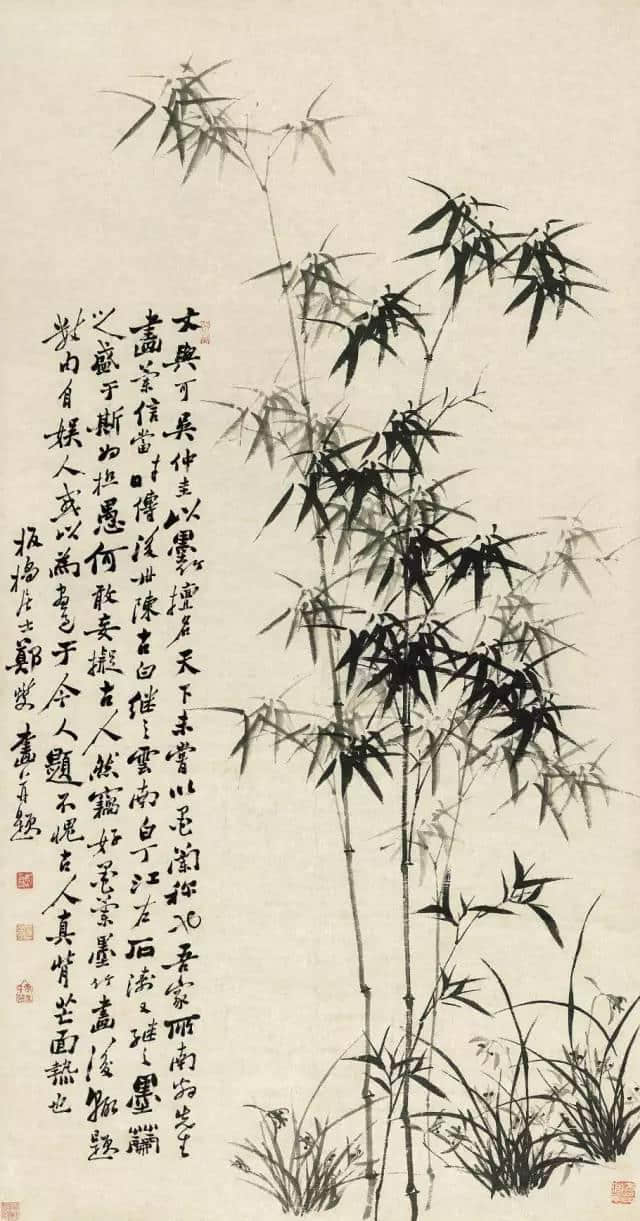 文與可吳仲圭以墨竹擅名天下未嘗以墨蘭称也吾家所南翁先生
畫蘭信當時傳後世陳古白継之雲南白丁江左石濤又継之墨蘭
之盛于斯為極愚何敢妄擬古人然竊好墨蘭墨竹畫後輒題
數句自娱人或以為畫于今人題不愧古人真背芒面熱也
板橋居士鄭燮畫并題